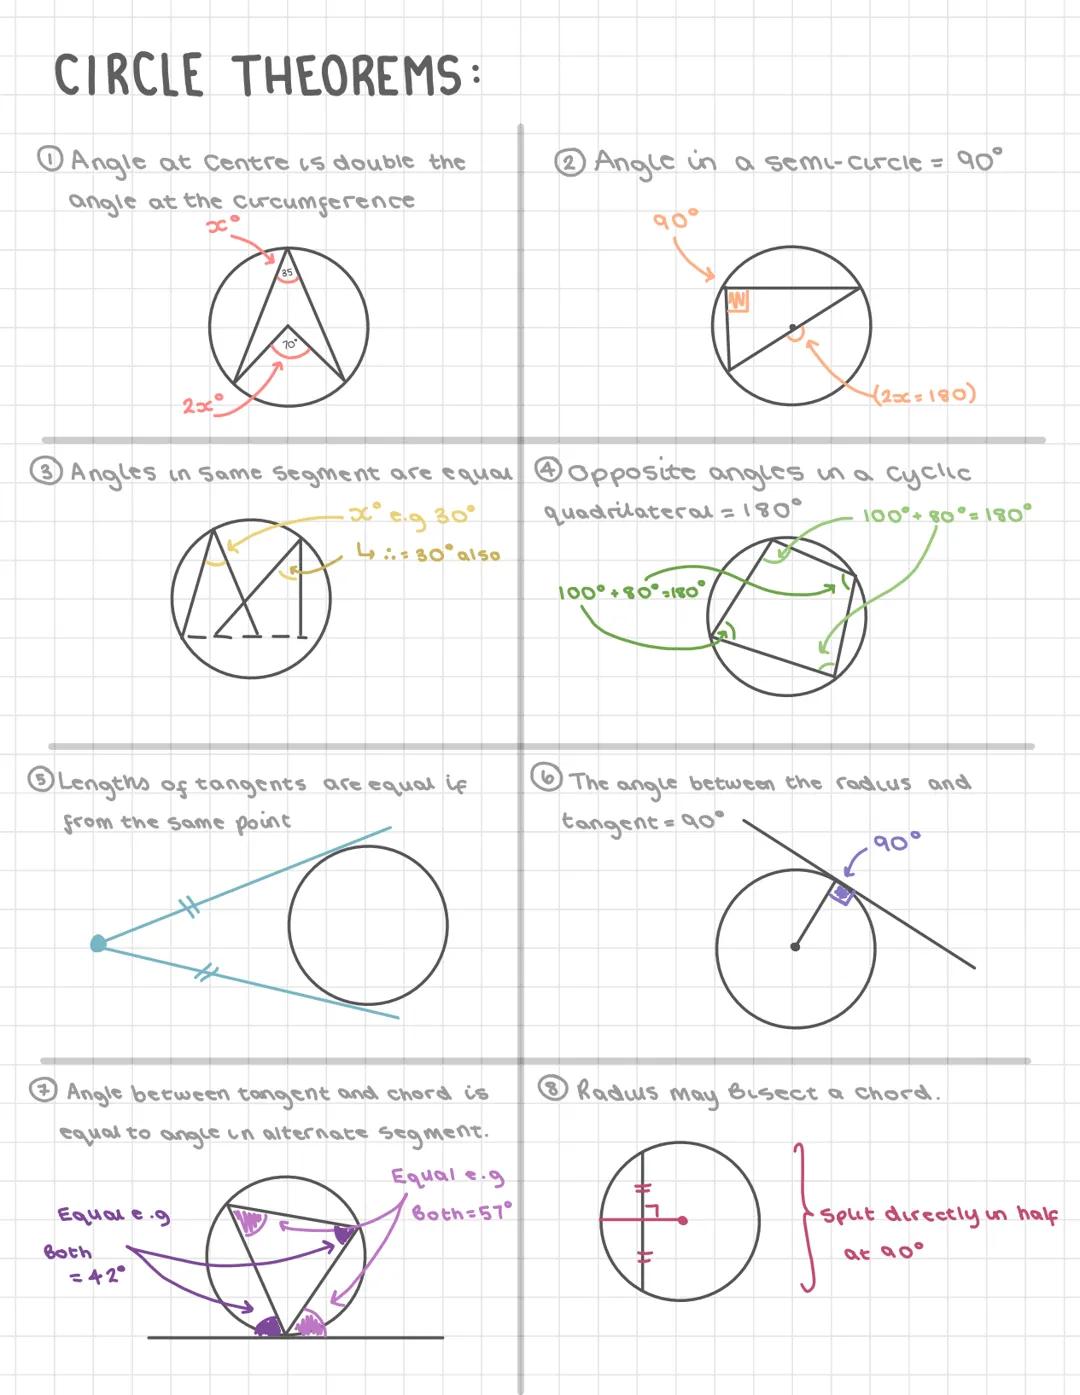 CIRCLE THEOREMS:
① Angle at Centre is double the
angle at the circumference
x°
35
70°
2x°
② Angle in a semi-circle = 90°
90°
(2x = 180)
③ Angles in Same Segment are equal
x° e.g 30°
↳ ∴ = 30° also
④ Opposite angles in a cyclic
quadrilateral = 180°
100° + 80° = 180°
100° + 80° = 180°
⑤ Lengths of tangents are equal if
from the same point
⑥ The angle between the radius and
tangent = 90°
90°
⑦ Angle between tangent and chord is
equal to angle in alternate segment.
Equal e.g
Both = 57°
Equal e.g
Both
= 42°
⑧ Radius may Bisect a chord.
Split directly in half
at 90°